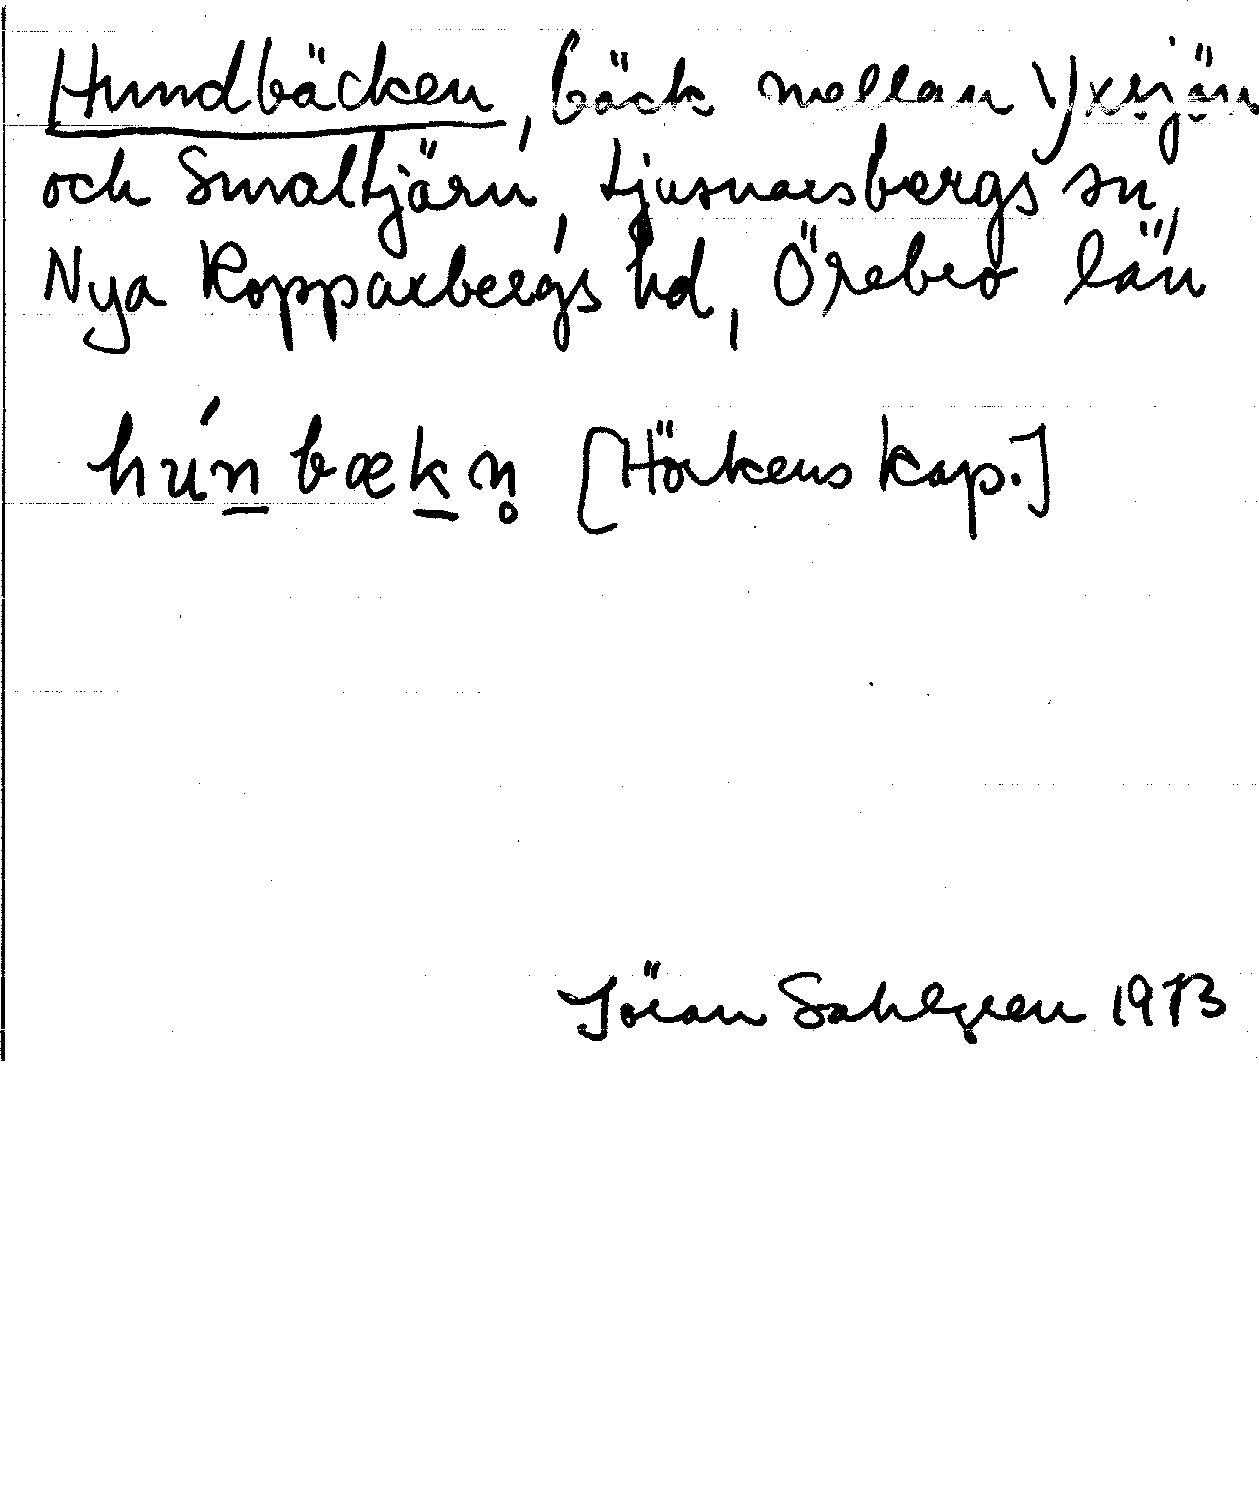 Hundbäcken, bäck mellan Yxsjön
och Smaltjärn, Ljusnarsbergs sn,
Nya Kopparbergs hd, Örebro län
hún bækn̥ [Hörkens kap.]
Jöran Sahlgren 1913